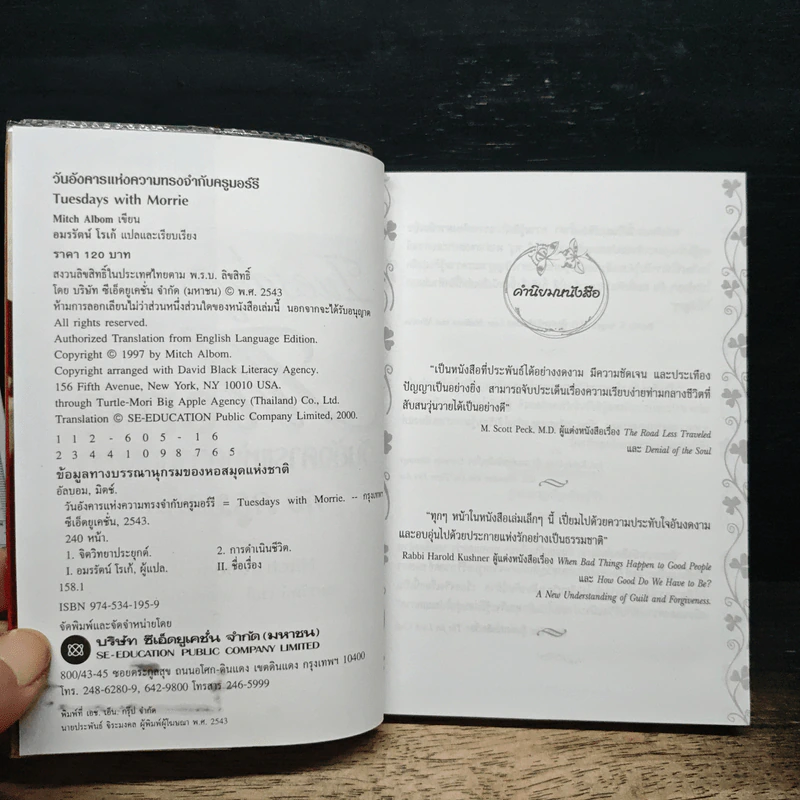 วันอังคารแห่งความทรงจำกับครูมอร์รี
Tuesdays with Morrie
Mitch Albom เขียน
อมรรัตน์ โรเก้ แปลและเรียบเรียง
ราคา 120 บาท
สงวนลิขสิทธิ์ในประเทศไทยตาม พ.ร.บ. ลิขสิทธิ์
โดย บริษัท ซีเอ็ดยูเคชั่น จำกัด (มหาชน) © พ.ศ. 2543
ห้ามการลอกเลียนไม่ว่าส่วนหนึ่งส่วนใดของหนังสือเล่มนี้ นอกจากจะได้รับอนุญาต
All rights reserved.
Authorized Translation from English Language Edition.
Copyright © 1997 by Mitch Albom.
Copyright arranged with David Black Literacy Agency.
156 Fifth Avenue, New York, N.Y 10010 USA.
through Turtle-Mori Big Apple Agency (Thailand) Co., Ltd.
Translation © SE-EDUCATION Public Company Limited, 2000.
1 1 2 - 6 0 5 - 1 6
2 3 4 4 1 0 9 8 7 6 5
ข้อมูลทางบรรณานุกรมของหอสมุดแห่งชาติ
อัลบอม, มิตช์.
วันอังคารแห่งความทรงจำกับครูมอร์รี = Tuesdays with Morrie. -- กรุงเทพฯ
ซีเอ็ดยูเคชั่น, 2543.
240 หน้า.
1. จิตวิทยาประยุกต์. 2. การดำเนินชีวิต.
I. อมรรัตน์ โรเก้, ผู้แปล. II. ชื่อเรื่อง
158.1
ISBN 974-534-195-9
จัดพิมพ์และจัดจำหน่ายโดย
บริษัท ซีเอ็ดยูเคชั่น จำกัด (มหาชน)
SE-EDUCATION PUBLIC COMPANY LIMITED
800/43-45 ซอยตระกูลสุข ถนนอโศก-ดินแดง เขตดินแดง กรุงเทพฯ 10400
โทร. 248-6280-9, 642-9800 โทรสาร 246-5999
พิมพ์ที่ เอช. เอ็น. กรุ๊ป จำกัด
นายประพันธ์ จิระมงคล ผู้พิมพ์ผู้โฆษณา พ.ศ. 2543
คำนิยมหนังสือ
"เป็นหนังสือที่ประพันธ์ได้อย่างงดงาม มีความชัดเจน และประเทือง
ปัญญาเป็นอย่างยิ่ง สามารถจับประเด็นเรื่องความเรียบง่ายท่ามกลางชีวิตที่
สับสนวุ่นวายได้เป็นอย่างดี"
M. Scott Peck, M.D. ผู้แต่งหนังสือเรื่อง The Road Less Traveled
และ Denial of the Soul
"ทุกๆ หน้าในหนังสือเล่มเล็กๆ นี้ เปี่ยมไปด้วยความประทับใจอันงดงาม
และอบอุ่นไปด้วยประกายแห่งรักอย่างเป็นธรรมชาติ"
Rabbi Harold Kushner ผู้แต่งหนังสือเรื่อง When Bad Things Happen to Good People
และ How Good Do We Have to Be?
A New Understanding of Guilt and Forgiveness.